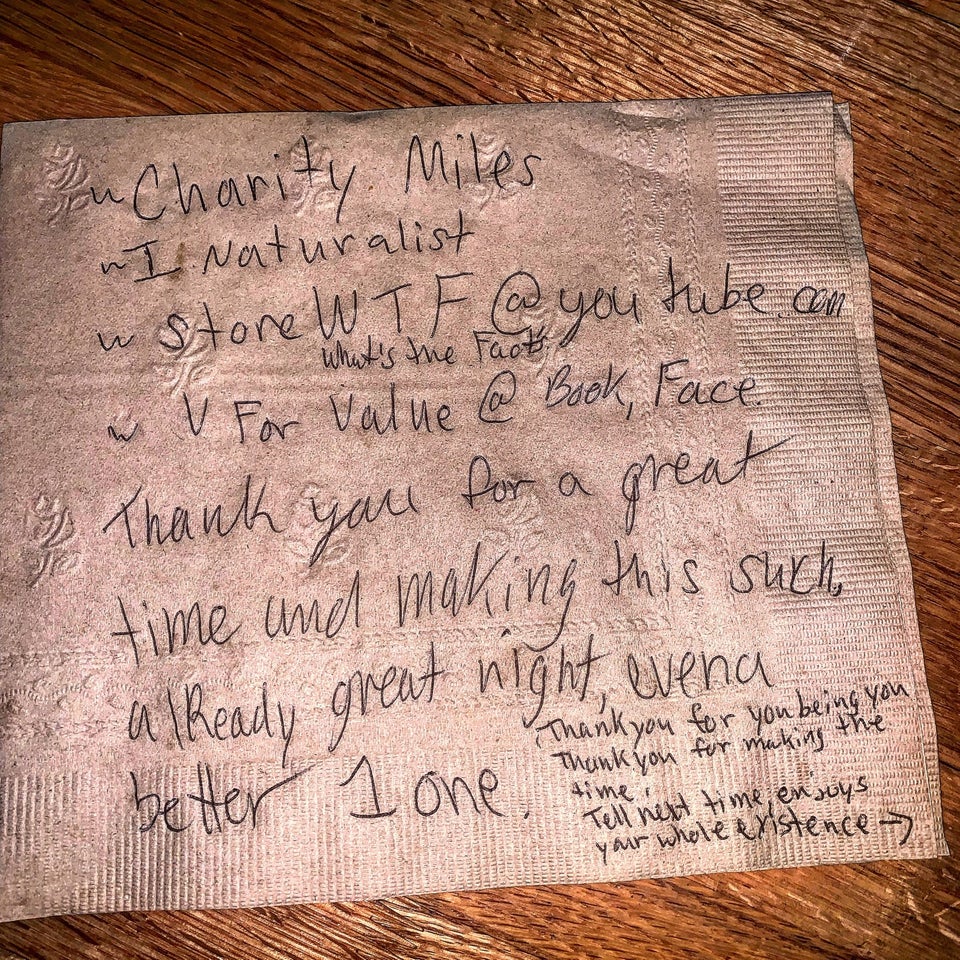 ~ Charity Miles
~ I Naturalist
~ Stone WTF @ you tube.com
what's the Facts
~ V For Value @ Book, Face.
Thank you for a great
time and making this such,
alReady great night, evena
better 1 one.
Thank you for you being you
Thank you for making the
time.
Tell next time, enjoys
your whole existence →